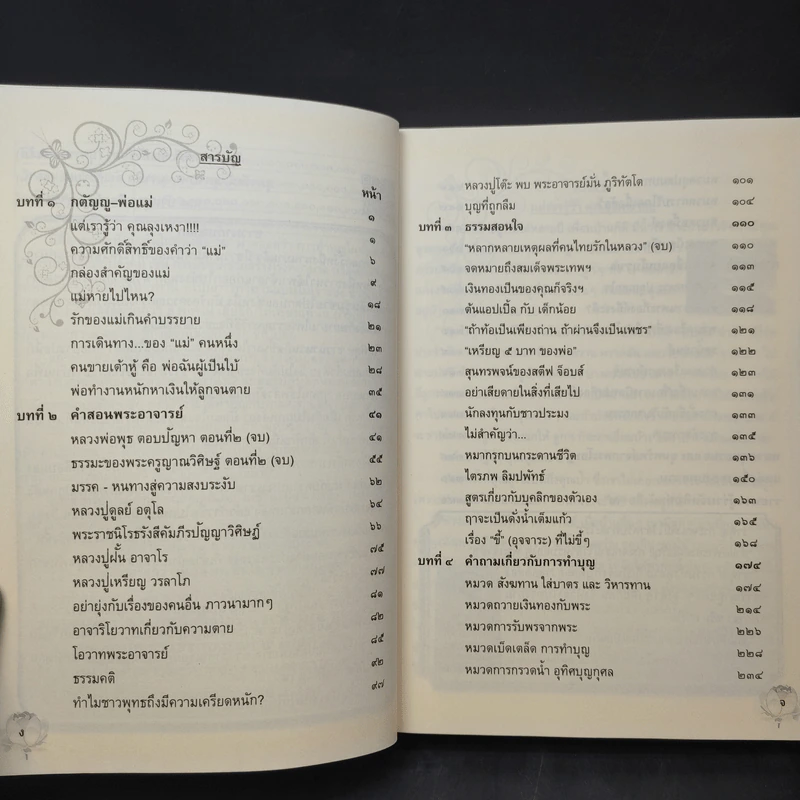 สารบัญ
หน้า
บทที่ ๑ กตัญญู-พ่อแม่ ๑
แต่เรารู้ว่า คุณลุงเหงา!!!! ๑
ความศักดิ์สิทธิ์ของคำว่า “แม่” ๖
กล่องสำคัญของแม่ ๙
แม่หายไปไหน? ๑๘
รักของแม่เกินคำบรรยาย ๒๑
การเดินทาง...ของ “แม่” คนหนึ่ง ๒๓
คนขายเต้าหู้ คือ พ่อฉันผู้เป็นใบ้ ๒๘
พ่อทำงานหนักหาเงินให้ลูกจนตาย ๓๕
บทที่ ๒ คำสอนพระอาจารย์ ๔๑
หลวงพ่อพุธ ตอบปัญหา ตอนที่๒ (จบ) ๔๑
ธรรมะของพระครูญาณวิศิษฏ์ ตอนที่๒ (จบ) ๕๕
มรรค - หนทางสู่ความสงบระงับ ๖๒
หลวงปู่ดูลย์ อตุโล ๖๔
พระราชนิโรธรังสีคัมภีรปัญญาวิศิษฏ์ ๖๖
หลวงปู่ฝั้น อาจาโร ๗๕
หลวงปู่เหรียญ วรลาโภ ๗๗
อย่ายุ่งกับเรื่องของคนอื่น ภาวนามากๆ ๘๑
อาจาริโยวาทเกี่ยวกับความตาย ๘๒
โอวาทพระอาจารย์ ๘๕
ธรรมคติ ๙๒
ทำไมชาวพุทธถึงมีความเครียดหนัก? ๙๗
ง
หลวงปู่โต๊ะ พบ พระอาจารย์มั่น ภูริทัตโต ๑๐๑
บุญที่ถูกลืม ๑๐๔
บทที่ ๓ ธรรมสอนใจ ๑๑๐
“หลากหลายเหตุผลที่คนไทยรักในหลวง” (จบ) ๑๑๐
จดหมายถึงสมเด็จพระเทพฯ ๑๑๓
เงินทองเป็นของคุณก็จริงฯ ๑๑๕
ต้นแอปเปิ้ล กับ เด็กน้อย ๑๑๘
“ถ้าท้อเป็นเพียงถ่าน ถ้าผ่านจึงเป็นเพชร” ๑๒๑
“เหรียญ ๕ บาท ของพ่อ” ๑๒๒
สุนทรพจน์ของสตีฟ จ็อบส์ ๑๒๓
อย่าเสียดายในสิ่งที่เสียไป ๑๓๑
นักลงทุนกับชาวประมง ๑๓๓
ไม่สำคัญว่า... ๑๓๕
หมากรุกบนกระดานชีวิต ๑๓๖
ไตรภพ ลิมปพัทธ์ ๑๕๐
สูตรเกี่ยวกับบุคลิกของตัวเอง ๑๖๓
ฤาจะเป็นดั่งน้ำเต็มแก้ว ๑๖๕
เรื่อง “ขี้” (อุจจาระ) ที่ไม่ขี้ๆ ๑๖๘
บทที่ ๔ คำถามเกี่ยวกับการทำบุญ ๑๗๔
หมวด สังฆทาน ใส่บาตร และ วิหารทาน ๑๗๔
หมวดถวายเงินทองกับพระ ๒๑๔
หมวดการรับพรจากพระ ๒๒๖
หมวดเบ็ดเตล็ด การทำบุญ ๒๒๘
หมวดการกรวดน้ำ อุทิศบุญกุศล ๒๓๔
จ